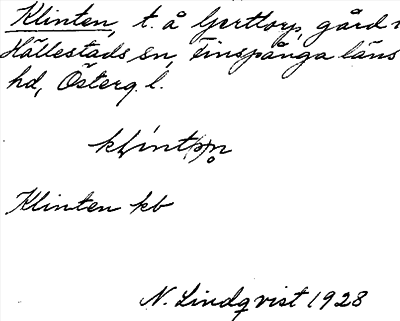 Klinten, t. å Gerttorp, gård i
Hällestads sn, Finspånga läns
hd, Österg. l.
Klinten kb
N. Lindqvist 1928